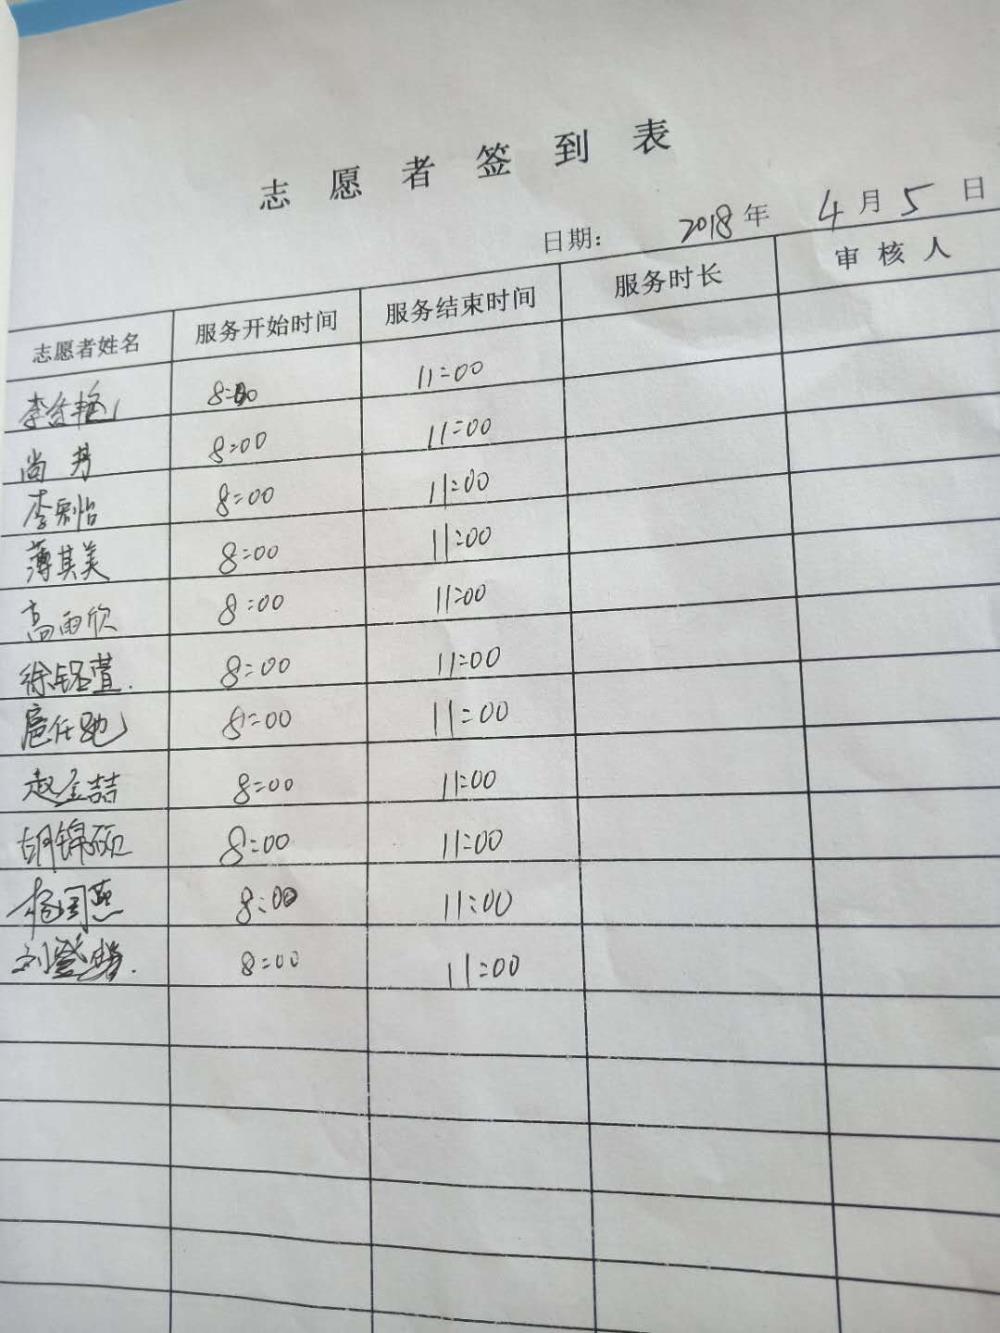 志愿者签到表
日期： 2018年 4月5日
志愿者姓名 服务开始时间 服务结束时间 服务时长 审核人
8:00 11:00
尚丹 8:00 11:00
8:00 11:00
薄其美 8:00 11:00
高雨欣 8:00 11:00
徐铭萱. 8:00 11:00
8:00 11:00
赵金喆 8:00 11:00
胡锦硕 8:00 11:00
8:00 11:00
8:00 11:00